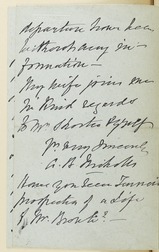 departure how has
without any in-
formation —
My wife joins me
in kind regards
to Mrs Shorter & yourself
Yr very sincerely
A. B. Nicholls
Have you seen Francis
prospectus of a life
of Mr Brontë? —